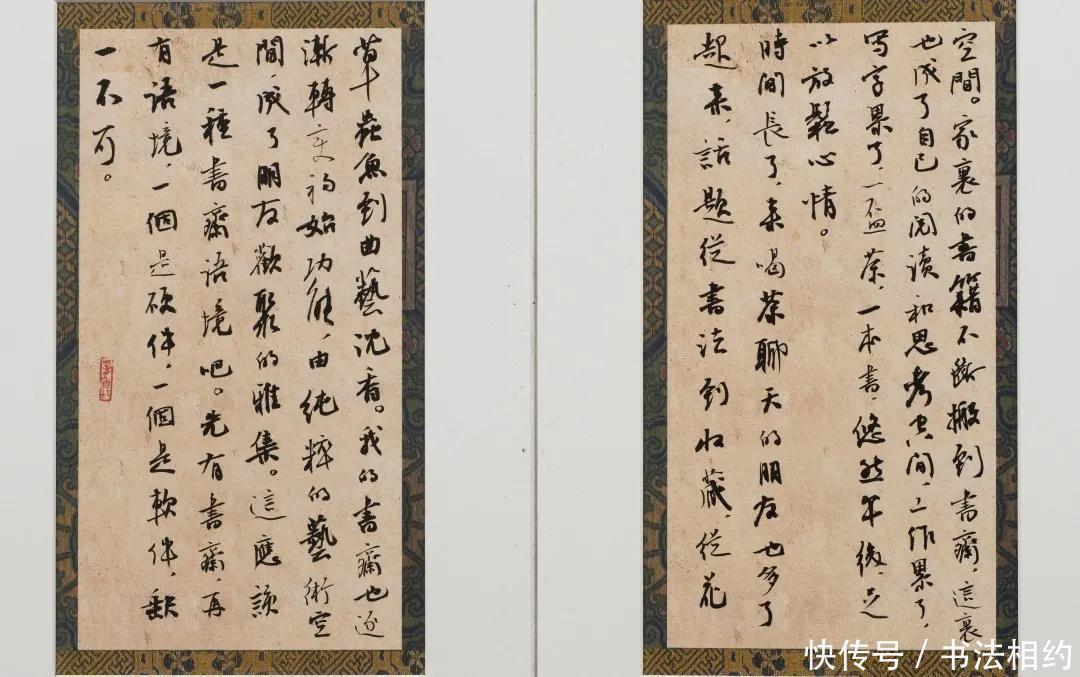 空間。家裏的書籍不斷搬到書齋，這裏
也成了自己的閱讀和思考空間，工作累了，
寫字累了，一盃茶，一本書，悠然午後，足
以放鬆心情。
時間長了，來喝茶聊天的朋友也多了
起來，話題從書法到收藏，從花
草蟲魚到曲藝沈香。我的書齋也逐
漸轉變初始功能，由純粹的藝術空
間，成了朋友歡聚的雅集。這應該
是一種書齋語境吧。先有書齋，再
有語境，一個是硬件，一個是軟件，缺
一不可。
快传号 / 书法相约